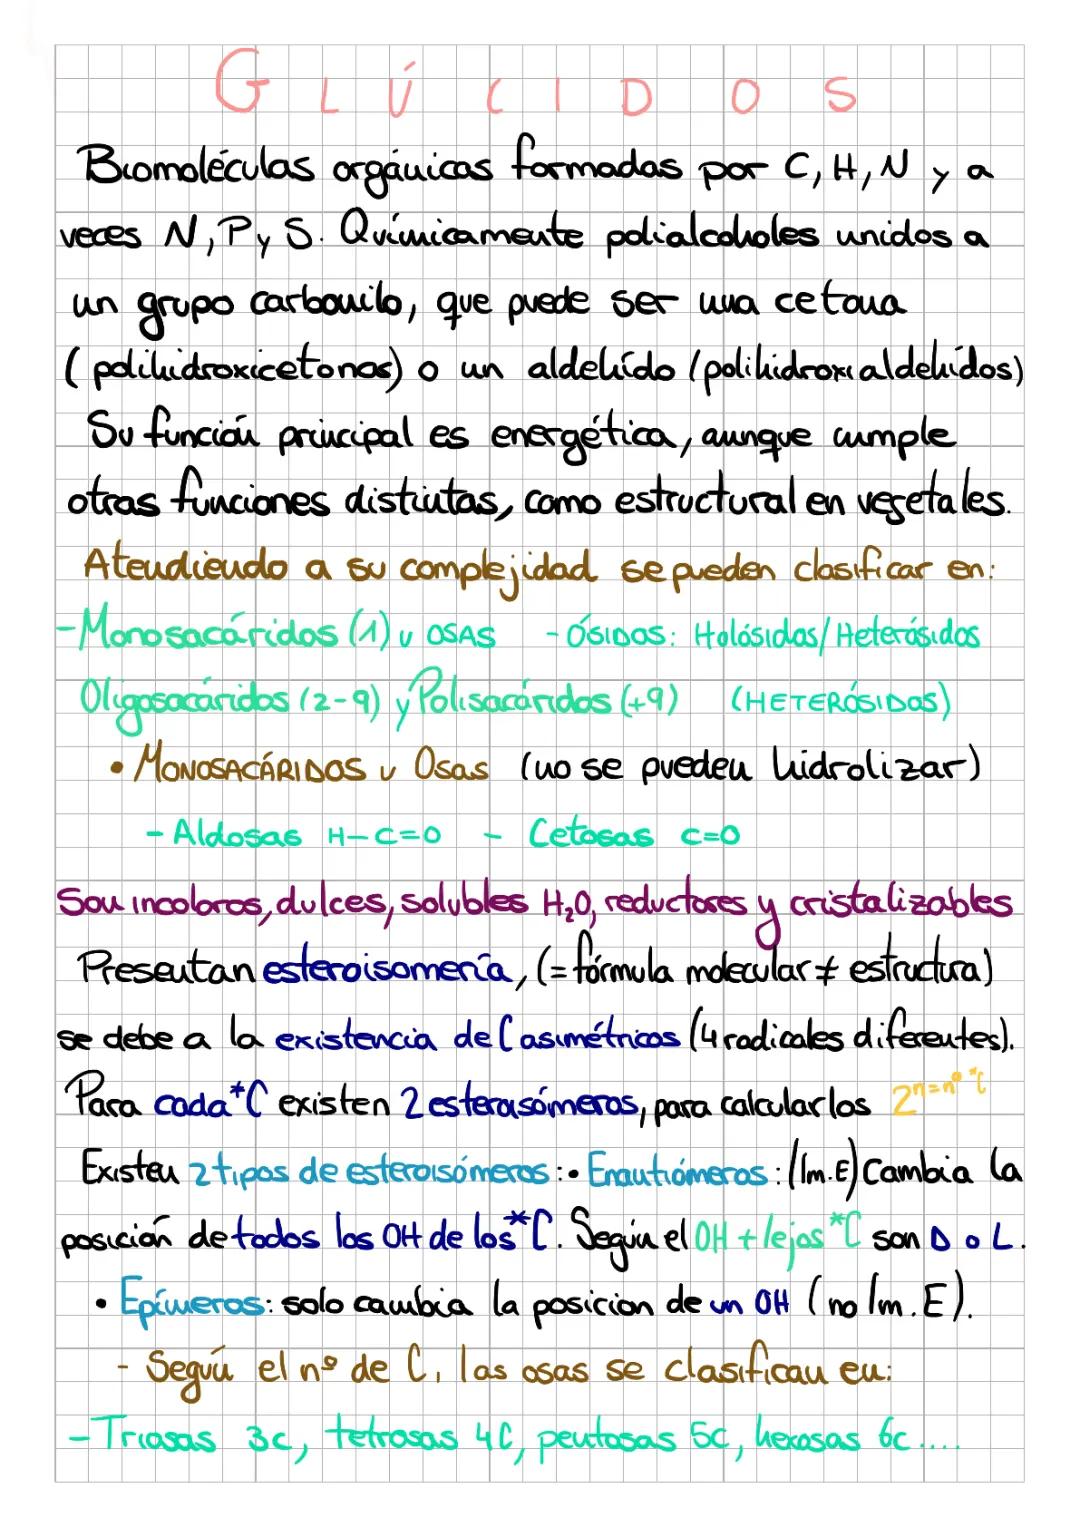 GLÚCIDOS
Biomoléculas orgánicas formadas por C, H, N y a
veces N, P y S. Químicamente polialcoholes unidos a
un grupo carbonilo, que puede ser una cetona
(polihidroxicetonas) o un aldehído (polihidroxialdehídos)
Su función principal es energética, aunque cumple
otras funciones distintas, como estructural en vegetales.
Atendiendo a su complejidad se pueden clasificar en:
- Monosacáridos (1) u OSAS - ÓSIDOS: Holósidos/Heterósidos
Oligosacáridos (2-9) y Polisacáridos (+9) (HETERÓSIDOS)
• MONOSACÁRIDOS u Osas (no se pueden hidrolizar)
- Aldosas H-C=O - Cetosas C=O
Son incoloros, dulces, solubles H₂O, reductores y cristalizables
Presentan esteroisomería, (= fórmula molecular ≠ estructura)
se debe a la existencia de C asimétricos (4 radicales diferentes).
Para cada *C existen 2 esterasómeros, para calcularlos 2ⁿ⁼ⁿº *C
Existen 2 tipos de esteroisómeros: • Enantiómeros: (Im.E) Cambia la
posición de todos los OH de los *C. Según el OH + lejos *C son D o L.
• Epímeros: solo cambia la posicion de un OH (no Im.E).
- Según el nº de C, las osas se clasifican en:
- Triosas 3c, tetrosas 4C, pentosas 5c, hexosas 6c....